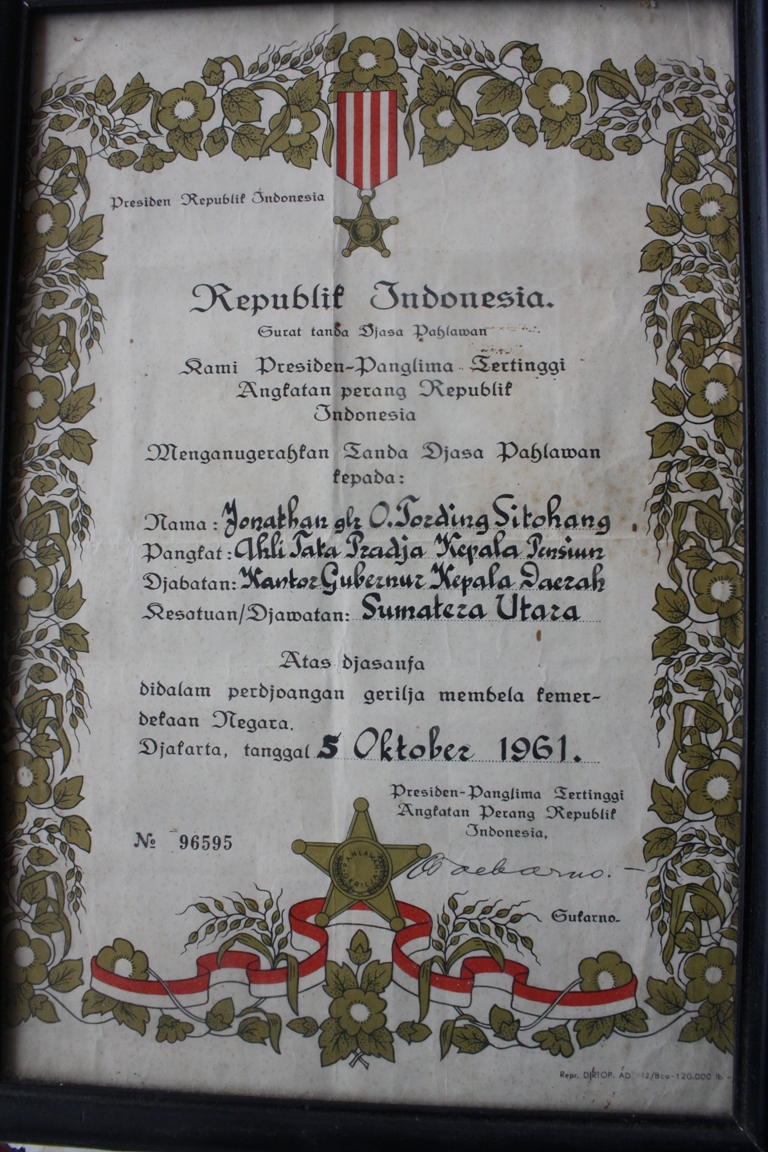 Presiden Republik Indonesia
Republik Indonesia.
Surat tanda Djasa Pahlawan
Kami Presiden-Panglima Tertinggi
Angkatan perang Republik
Indonesia
Menganugerahkan Tanda Djasa Pahlawan
kepada:
Nama: Jonathan glr O. Tording Sitohang
Pangkat: Ahli Tata Pradja Kepala Pensiun
Djabatan: Kantor Gubernur Kepala Daerah
Kesatuan/Djawatan: Sumatera Utara
Atas djasanja
didalam perdjoangan gerilja membela kemer-
dekaan Negara.
Djakarta, tanggal 5 Oktober 1961.
Presiden-Panglima Tertinggi
Angkatan Perang Republik
Indonesia,
№ 96595
Soekarno.
Sukarno.
Repr. DITTOP. AD